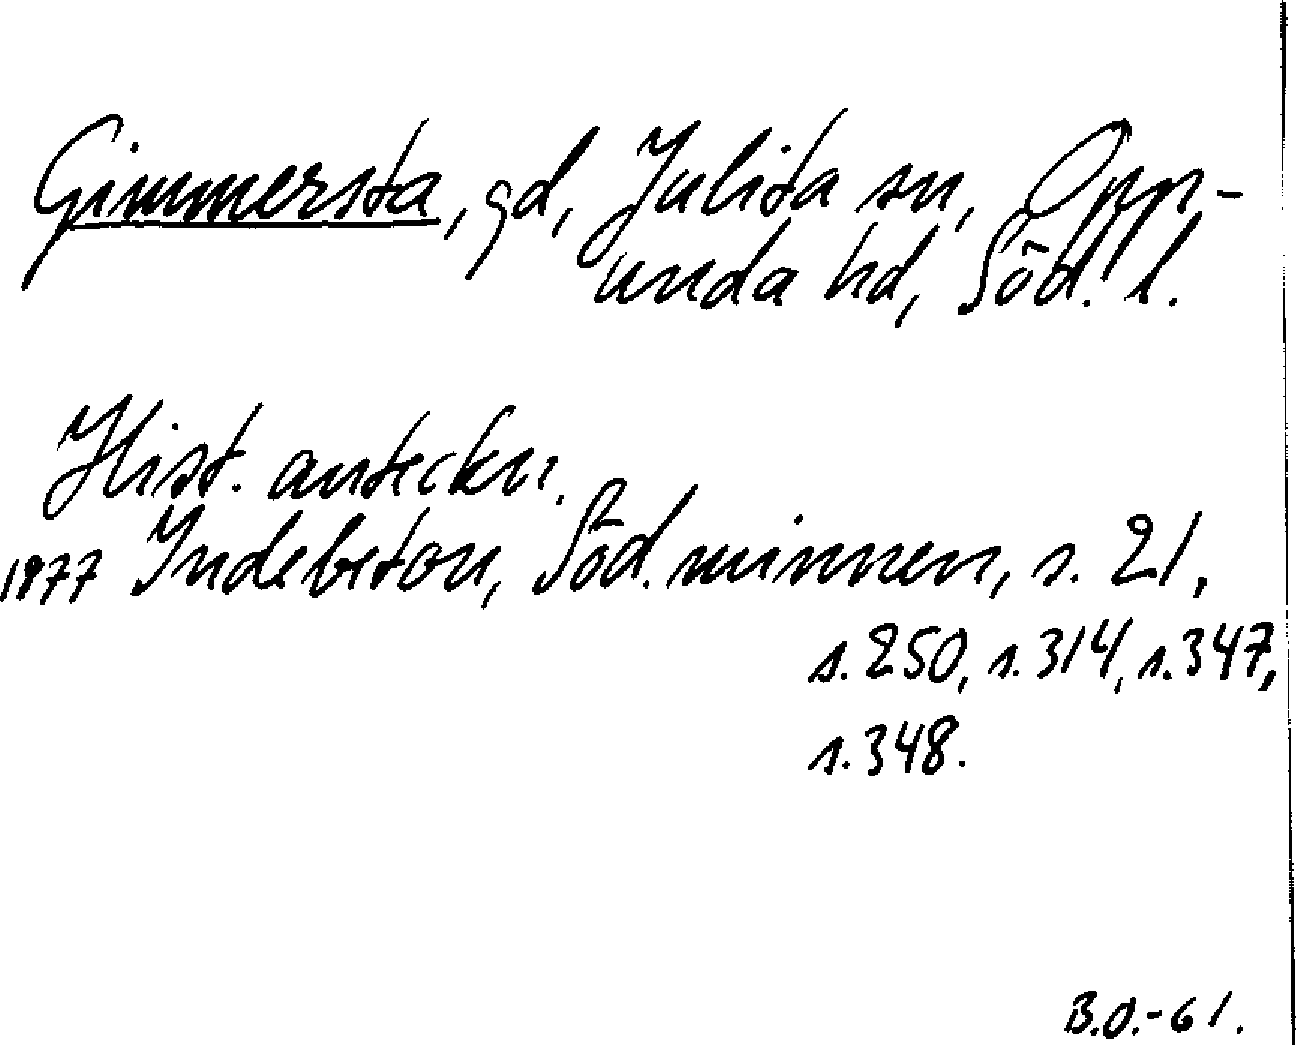 Gimmersta, gd, Julita sn, Opp-
unda hd, Söd. l.
Hist. anteckn.
1877 Indebetou, Söd. minnen, s. 21,
s. 250, s. 314, s. 347,
s. 348.
B.O.-61.